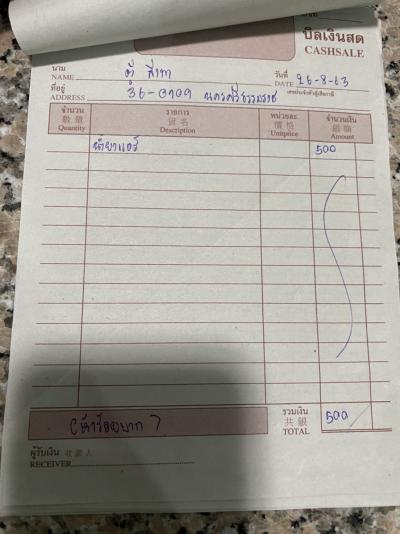 บิลเงินสด
CASHSALE
นาม
NAME ตั้ สีเทา
วันที่
DATE 26-8-63
ที่อยู่
ADDRESS 36-0709 นครศรีธรรมราช
เลขประจำตัวผู้เสียภาษี
จำนวน รายการ หน่วยละ จำนวนเงิน
數量 貨名 價格 銀額
Quantity Description Unitprice Amount
น้ำยาแอร์ 500
รวมเงิน
共銀
TOTAL 500
(ห้าร้อยบาท)
ผู้รับเงิน 收銀人
RECEIVER